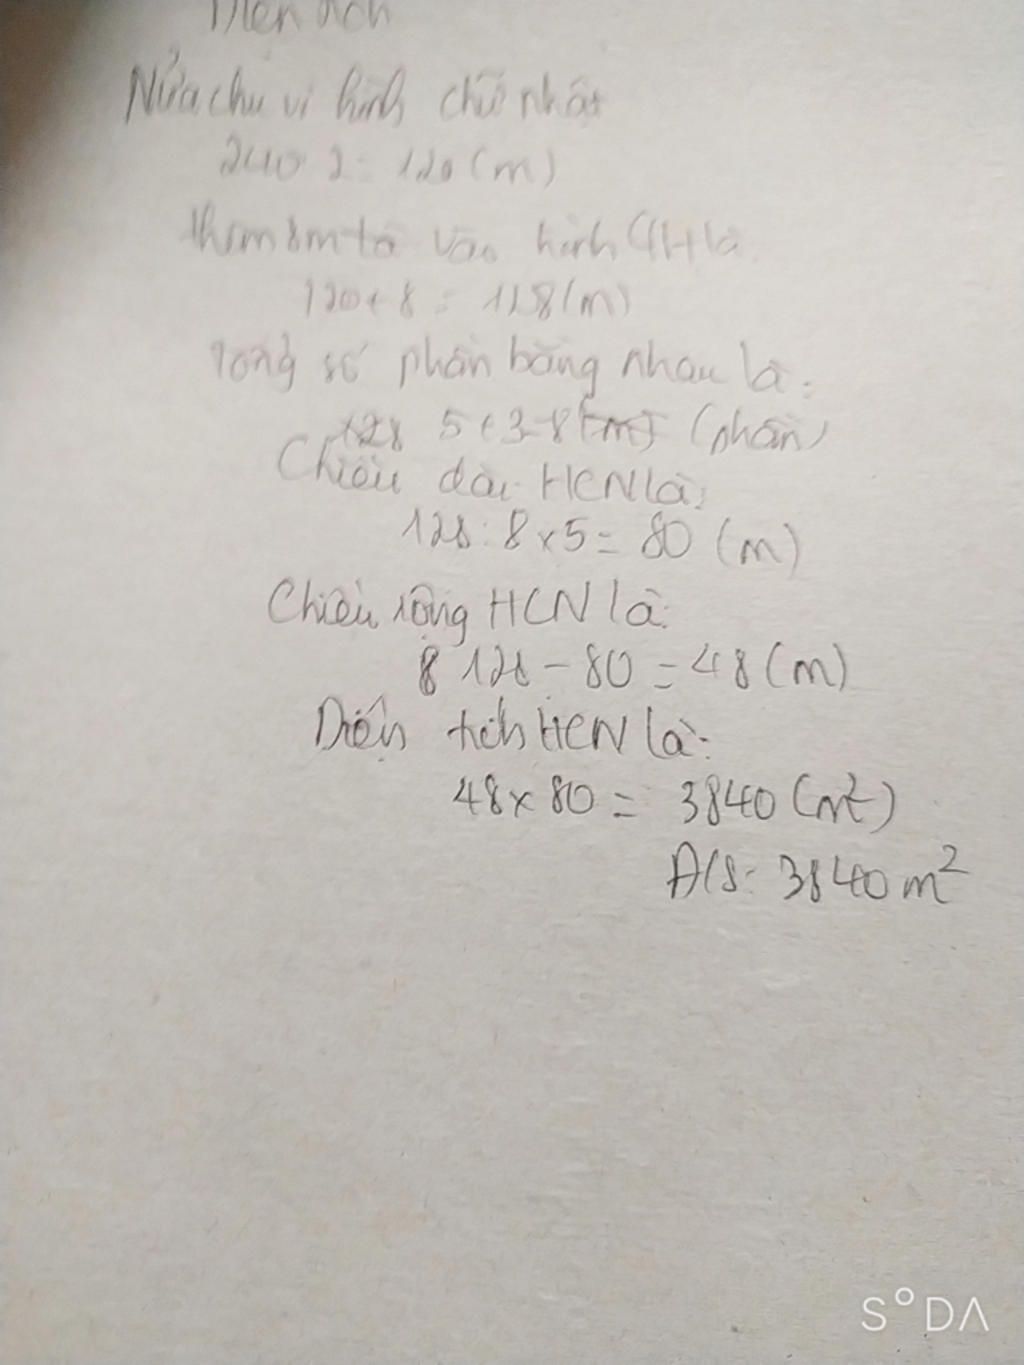 Diện tích
Nửa chu vi hình chữ nhật
240 2 = 120 (m)
thêm 8m ta vào hình CH là
120 + 8 = 128 (m)
Tổng số phần bằng nhau là:
128 5 + 3 = 8 (m) (phần)
Chiều dài HCN là:
128 : 8 x 5 = 80 (m)
Chiều rộng HCN là:
8 128 - 80 = 48 (m)
Diện tích HCN là:
48 x 80 = 3840 (m²)
Đ/S: 3840 m²
S°DA